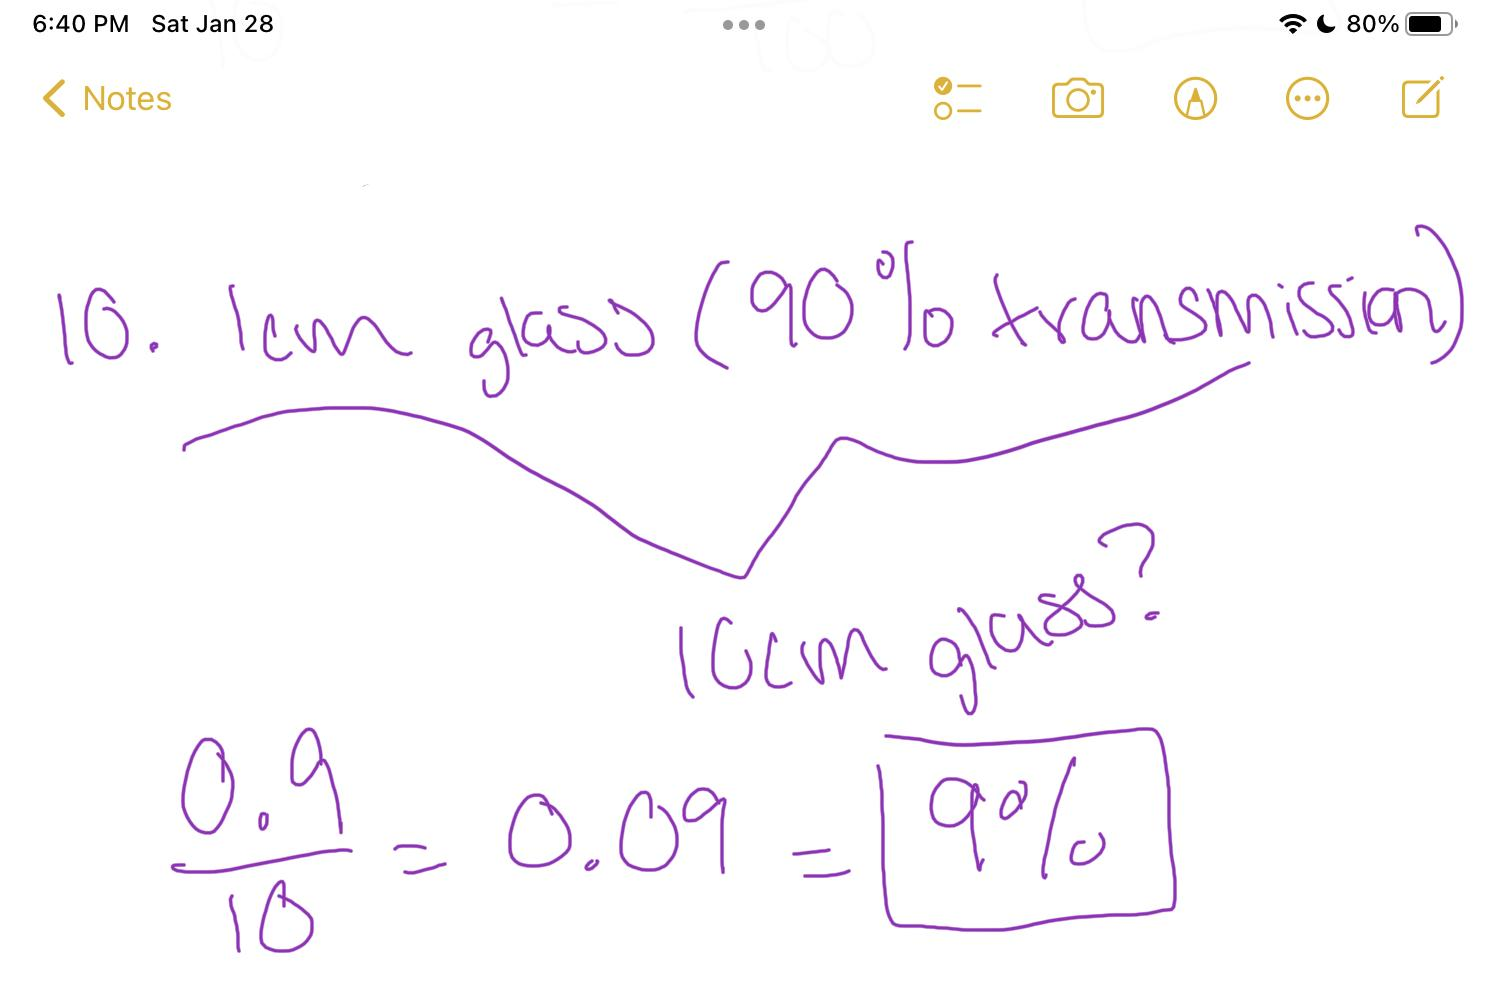 6:40 PM Sat Jan 28 80%
Notes
10. 1cm glass (90% transmission)
10cm glass?
0.9
10
= 0.09 = 9%